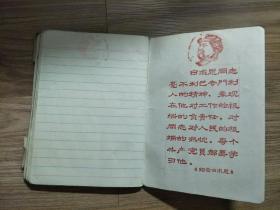 白求恩同志
毫不利己专門利
人的精神，表现
在他对工作的极
端的负责任，对
同志对人民的极
端的热忱。每个
共产党員都要学
习他。
《纪念白求恩》